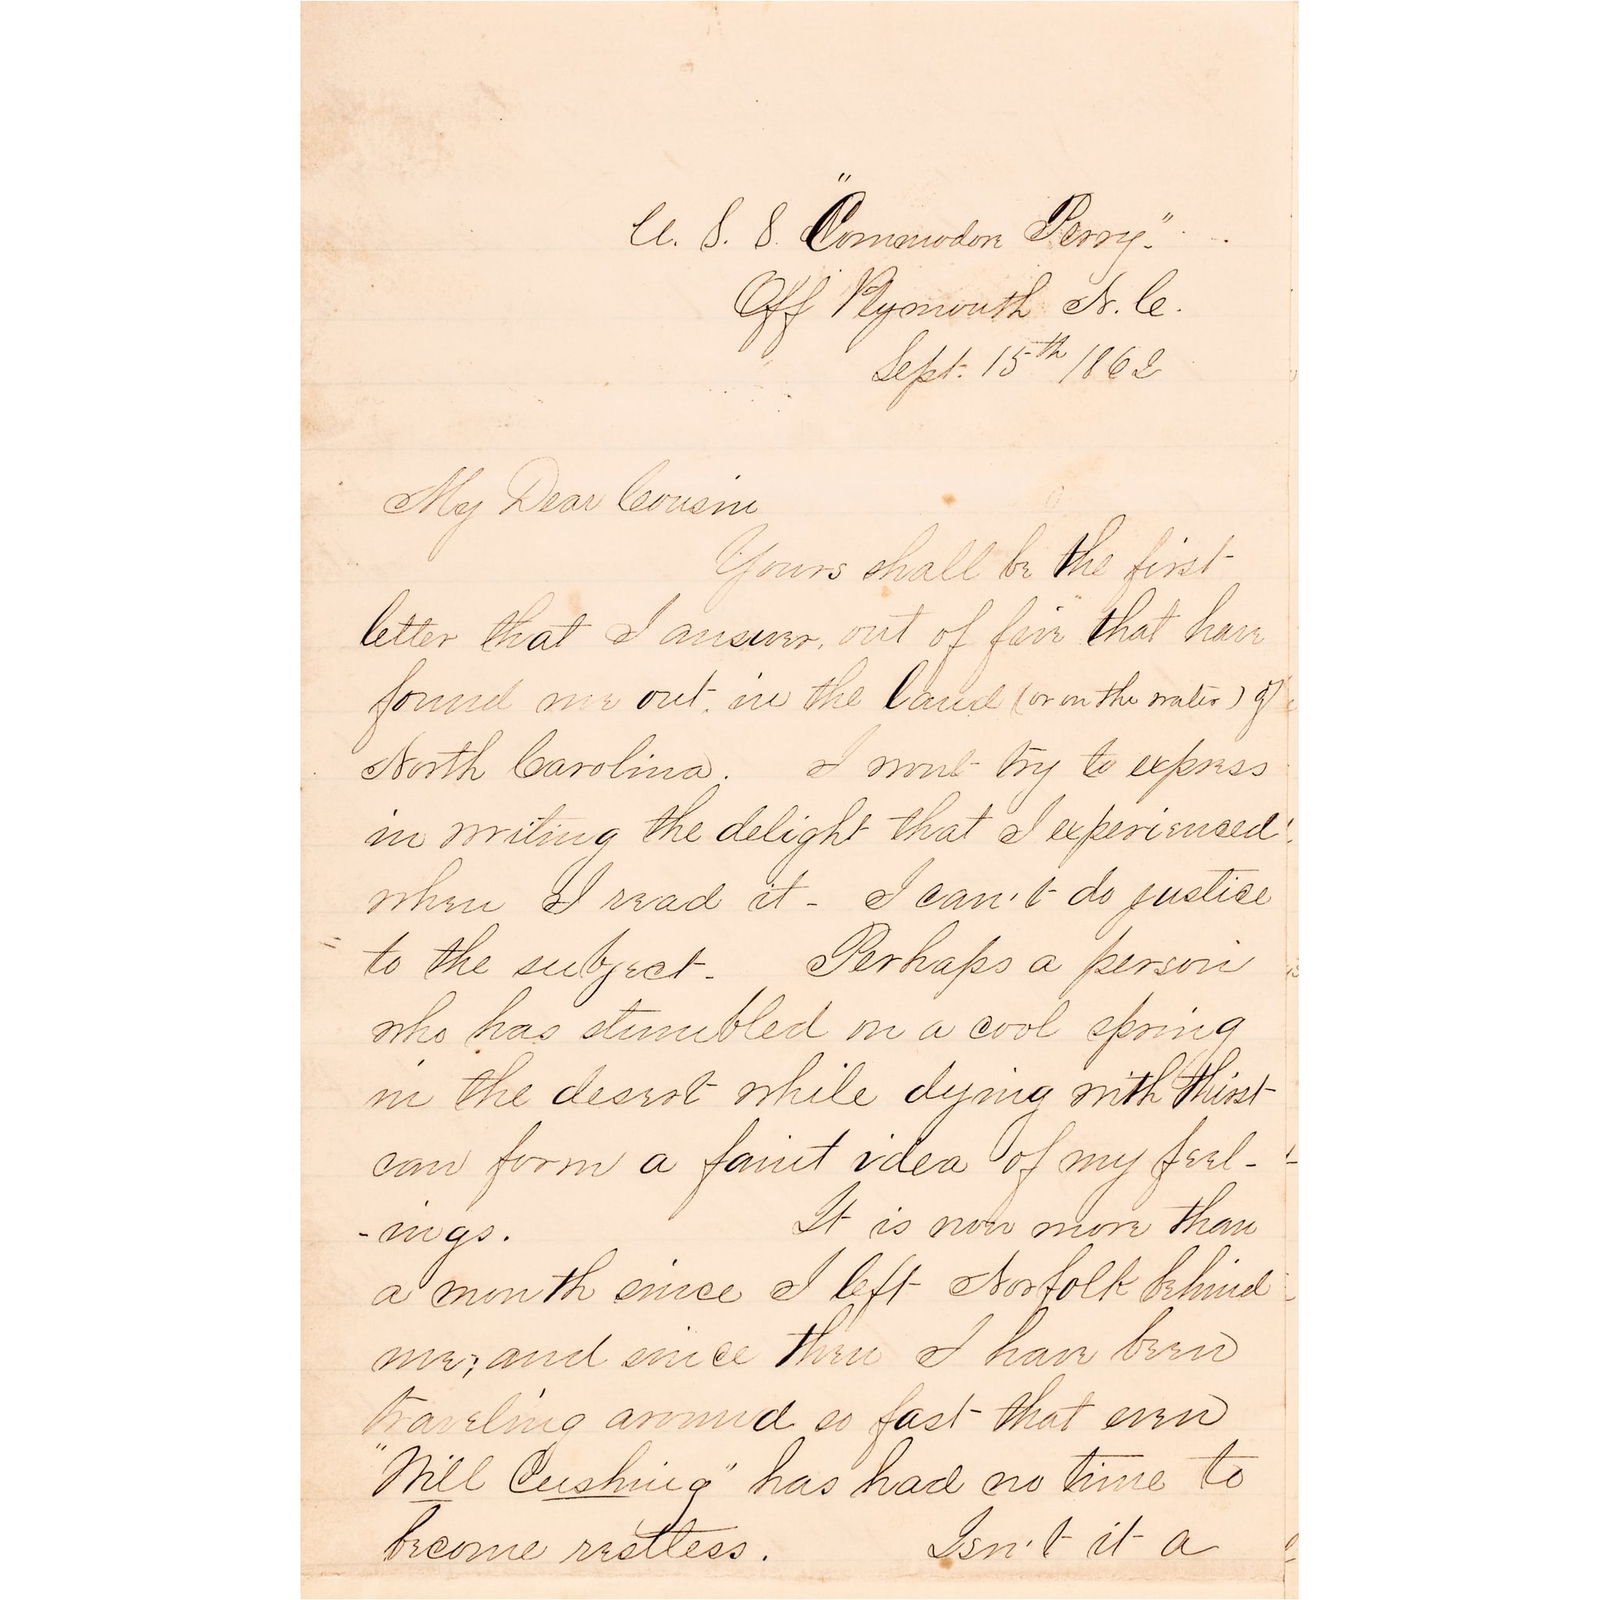 U. S. S. "Commodore Perry."
Off Plymouth N. C.
Sept. 15th 1862
My Dear Cousin
Yours shall be the first
letter that I answer, out of five that have
found me out, in the land (or on the water) of
North Carolina. I wont try to express
in writing the delight that I experienced
when I read it - I can't do justice
to the subject. Perhaps a person
who has stumbled on a cool spring
in the desert while dying with thirst
can form a faint idea of my feel-
-ings. It is now more than
a month since I left Norfolk behind
me; and since then I have been
traveling around so fast that even
"Will Cushing" has had no time to
become restless. Isn't it a